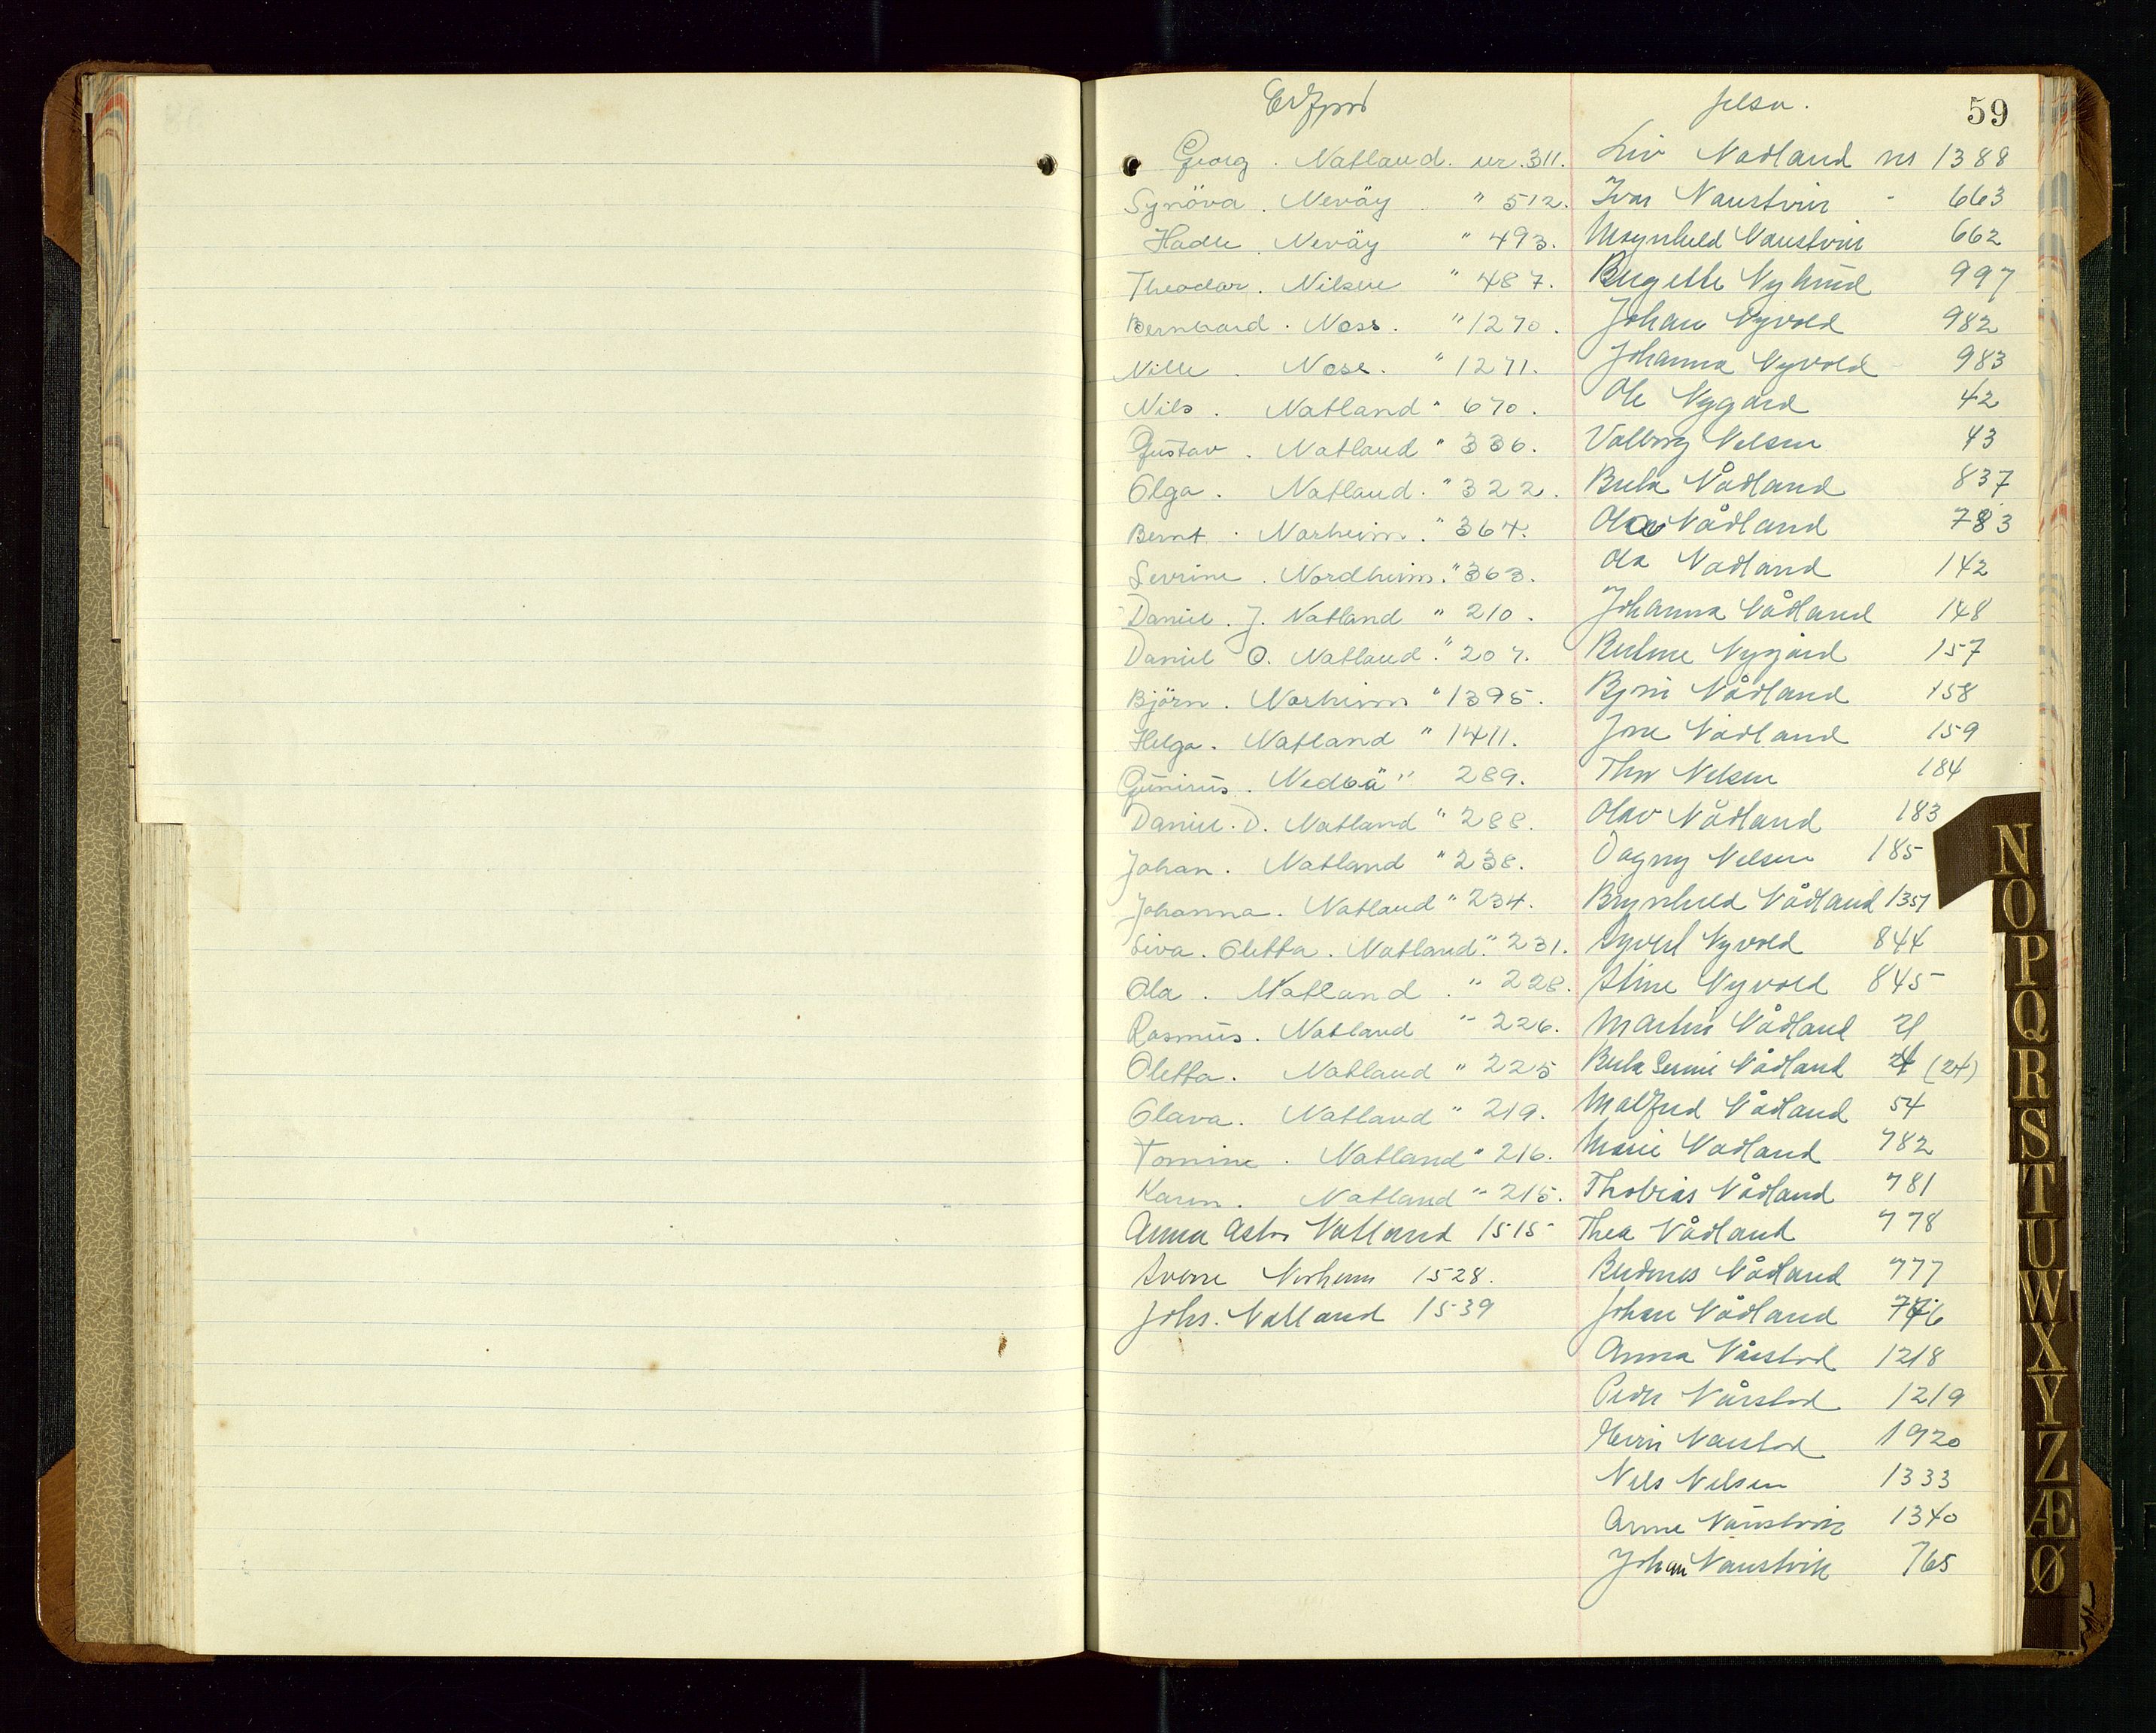 59
Erfjord
Georg . Natland . nr. 311.
Synöva . Neväy " 512.
Hadle . Neväy " 493.
Theodor . Nilsen " 487.
Bernhard . Ness . " 1270.
Nille . Nese . " 1271.
Nils . Natland " 670.
Gustav . Natland " 336.
Olga . Natland . " 322.
Bernt . Norheim . " 364.
Sevrine . Nordheim . " 363.
Daniel . J. Natland " 210.
Daniel O. Natland . " 207.
Björn . Norheim " 1395.
Helga . Natland " 1411.
Gunirius . Nedbä " 289.
Daniel . D. Natland " 288.
Johan . Natland " 238.
Johanna . Natland " 234.
Siva . Oletta . Natland . " 231.
Ola . Natland . " 228.
Rasmus . Natland " 226.
Oletta . Natland " 225
Olava . Natland " 219.
Tomine . Natland " 216.
Karen . Natland " 215.
Anna Natland 1515
Sverre Norheim 1528.
Johs. Natland 1539
Jelsa .
Liv Nådland nr 1388
Ivar Naustvik - 663
Magnhild Naustvik 662
Nylund 997
Johan Nyvold 982
Johanna Nyvold 983
Ole Nygård 42
Valborg Nilsen 43
Berta Nådland 837
Olav Nådland 783
Ola Nådland 142
Johanna Nådland 148
Nygård 157
Nådland 158
Jone Nådland 159
Thor Nilsen 184
Olav Nådland 183
Dagny Nilsen 185
Brynhild Nådland 1357
Syvert Nyvold 844
Stine Nyvold 845
Martin Nådland 21
Berta Nådland 24 (24)
Malfred Nådland 54
Marie Nådland 782
Thobias Nådland 781
Thea Nådland 778
Nådland 777
Johan Nådland 776
Anna Nårstød 1218
Peder Nårstød 1219
Nårstød 1920
Nils Nilsen 1333
Arne Naustvik 1340
Johan Naustvik 765
N
O
P
Q
R
S
T
U
W
X
Y
Z
Æ
Ø